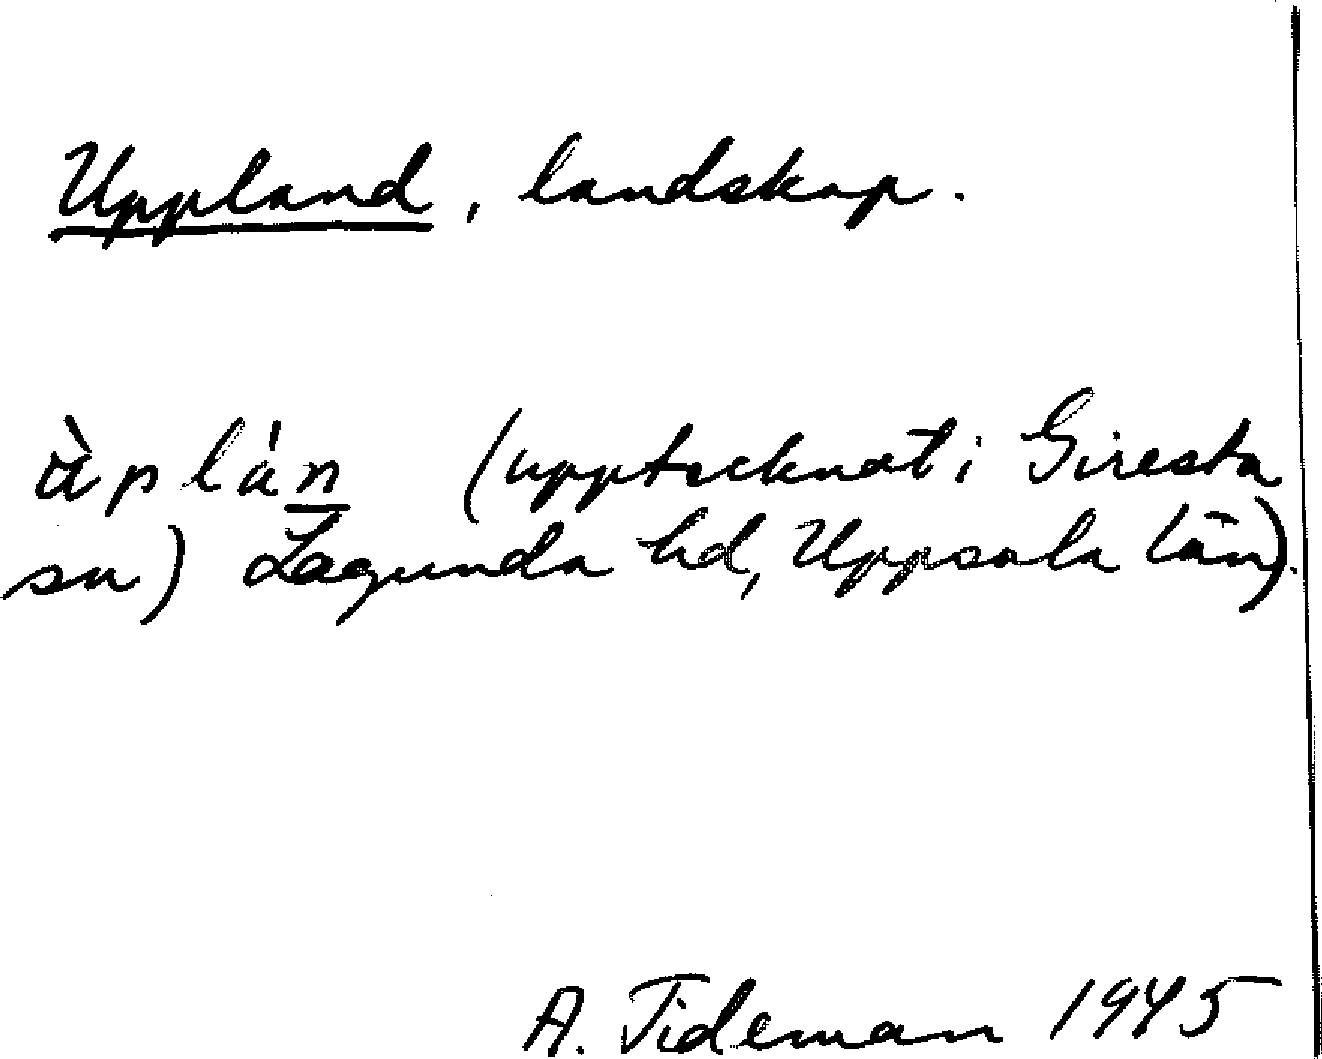 Uppland, landskap.
ùplàn (upptecknat i Giresta
sn) Lagunda hd, Uppsala län).
A. Tideman 1945